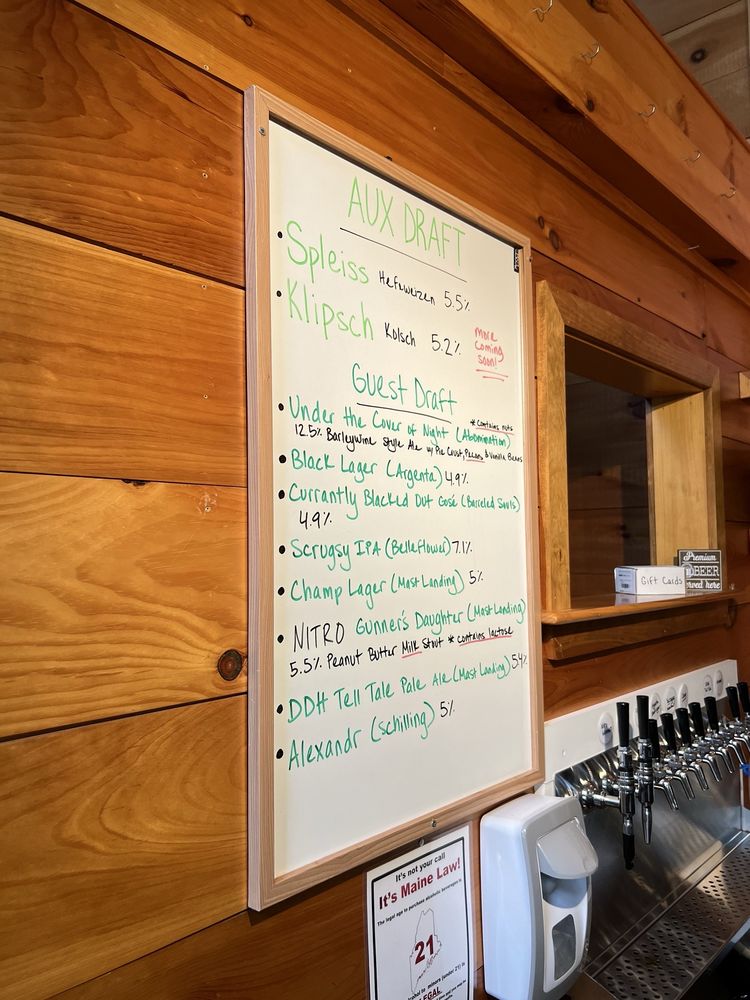 AUX DRAFT
• Spleiss Hefeweizen 5.5%
• Klipsch Kolsch 5.2%
more
coming
soon!
Guest Draft
• Under the Cover of Night (Abomination) * contains nuts
12.5% Barleywine Style Ale w/ Pie Crust, Pecans & Vanilla Beans
• Black Lager (Argenta) 4.9%
• Currantly Blacked Out Gose (Barreled Souls)
4.9%
• Scrugsy IPA (Belleflower) 7.1%
• Champ Lager (Mast Landing) 5%
• NITRO Gunner's Daughter (Mast Landing)
5.5% Peanut Butter Milk Stout * contains lactose
• DDH Tell Tale Pale Ale (Mast Landing) 5.4%
• Alexandr (schilling) 5%
Premium
BEER
served here
Gift Cards
It's not your call
It's Maine Law!
The legal age to purchase alcoholic beverages is
21